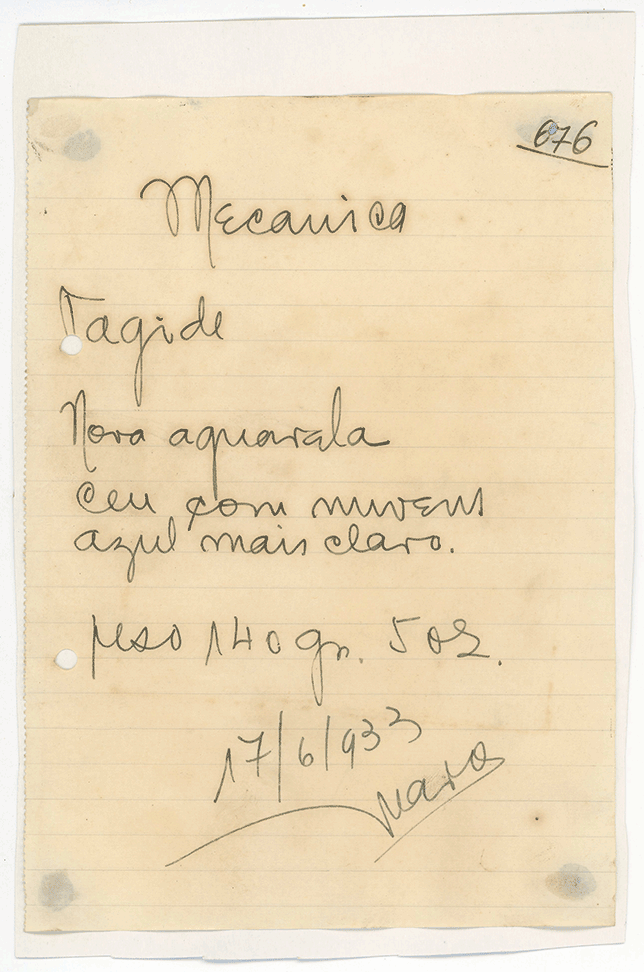 676
Mecanica
Tagide
Nova aquarela
ceu com nuvens
azul mais claro.
peso 140 gr. 5 oz.
17/6/933